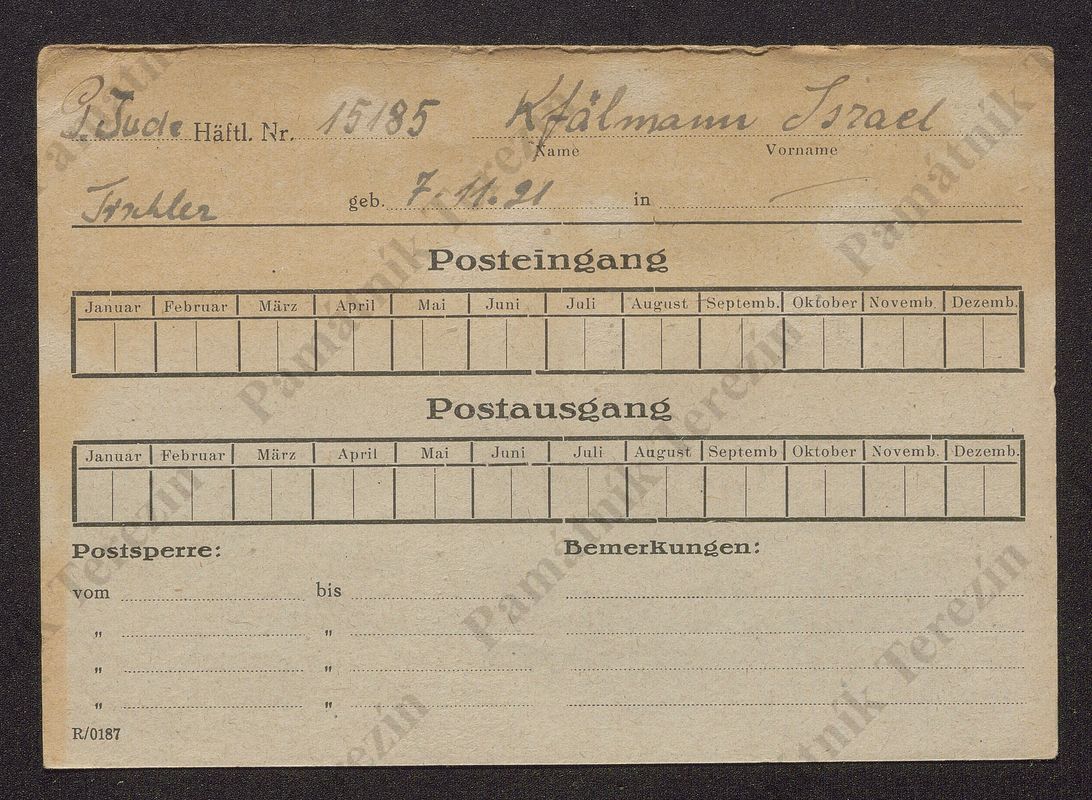 P. Jude Häftl. Nr. 15185 Kfälmann Israel
Name Vorname
Tischler geb. 7.11.21 in
Posteingang
Januar Februar März April Mai Juni Juli August Septemb. Oktober Novemb. Dezemb.
Postausgang
Januar Februar März April Mai Juni Juli August Septemb Oktober Novemb. Dezemb.
Postsperre: Bemerkungen:
vom bis
" "
" "
" "
R/0187
Památník Terezín